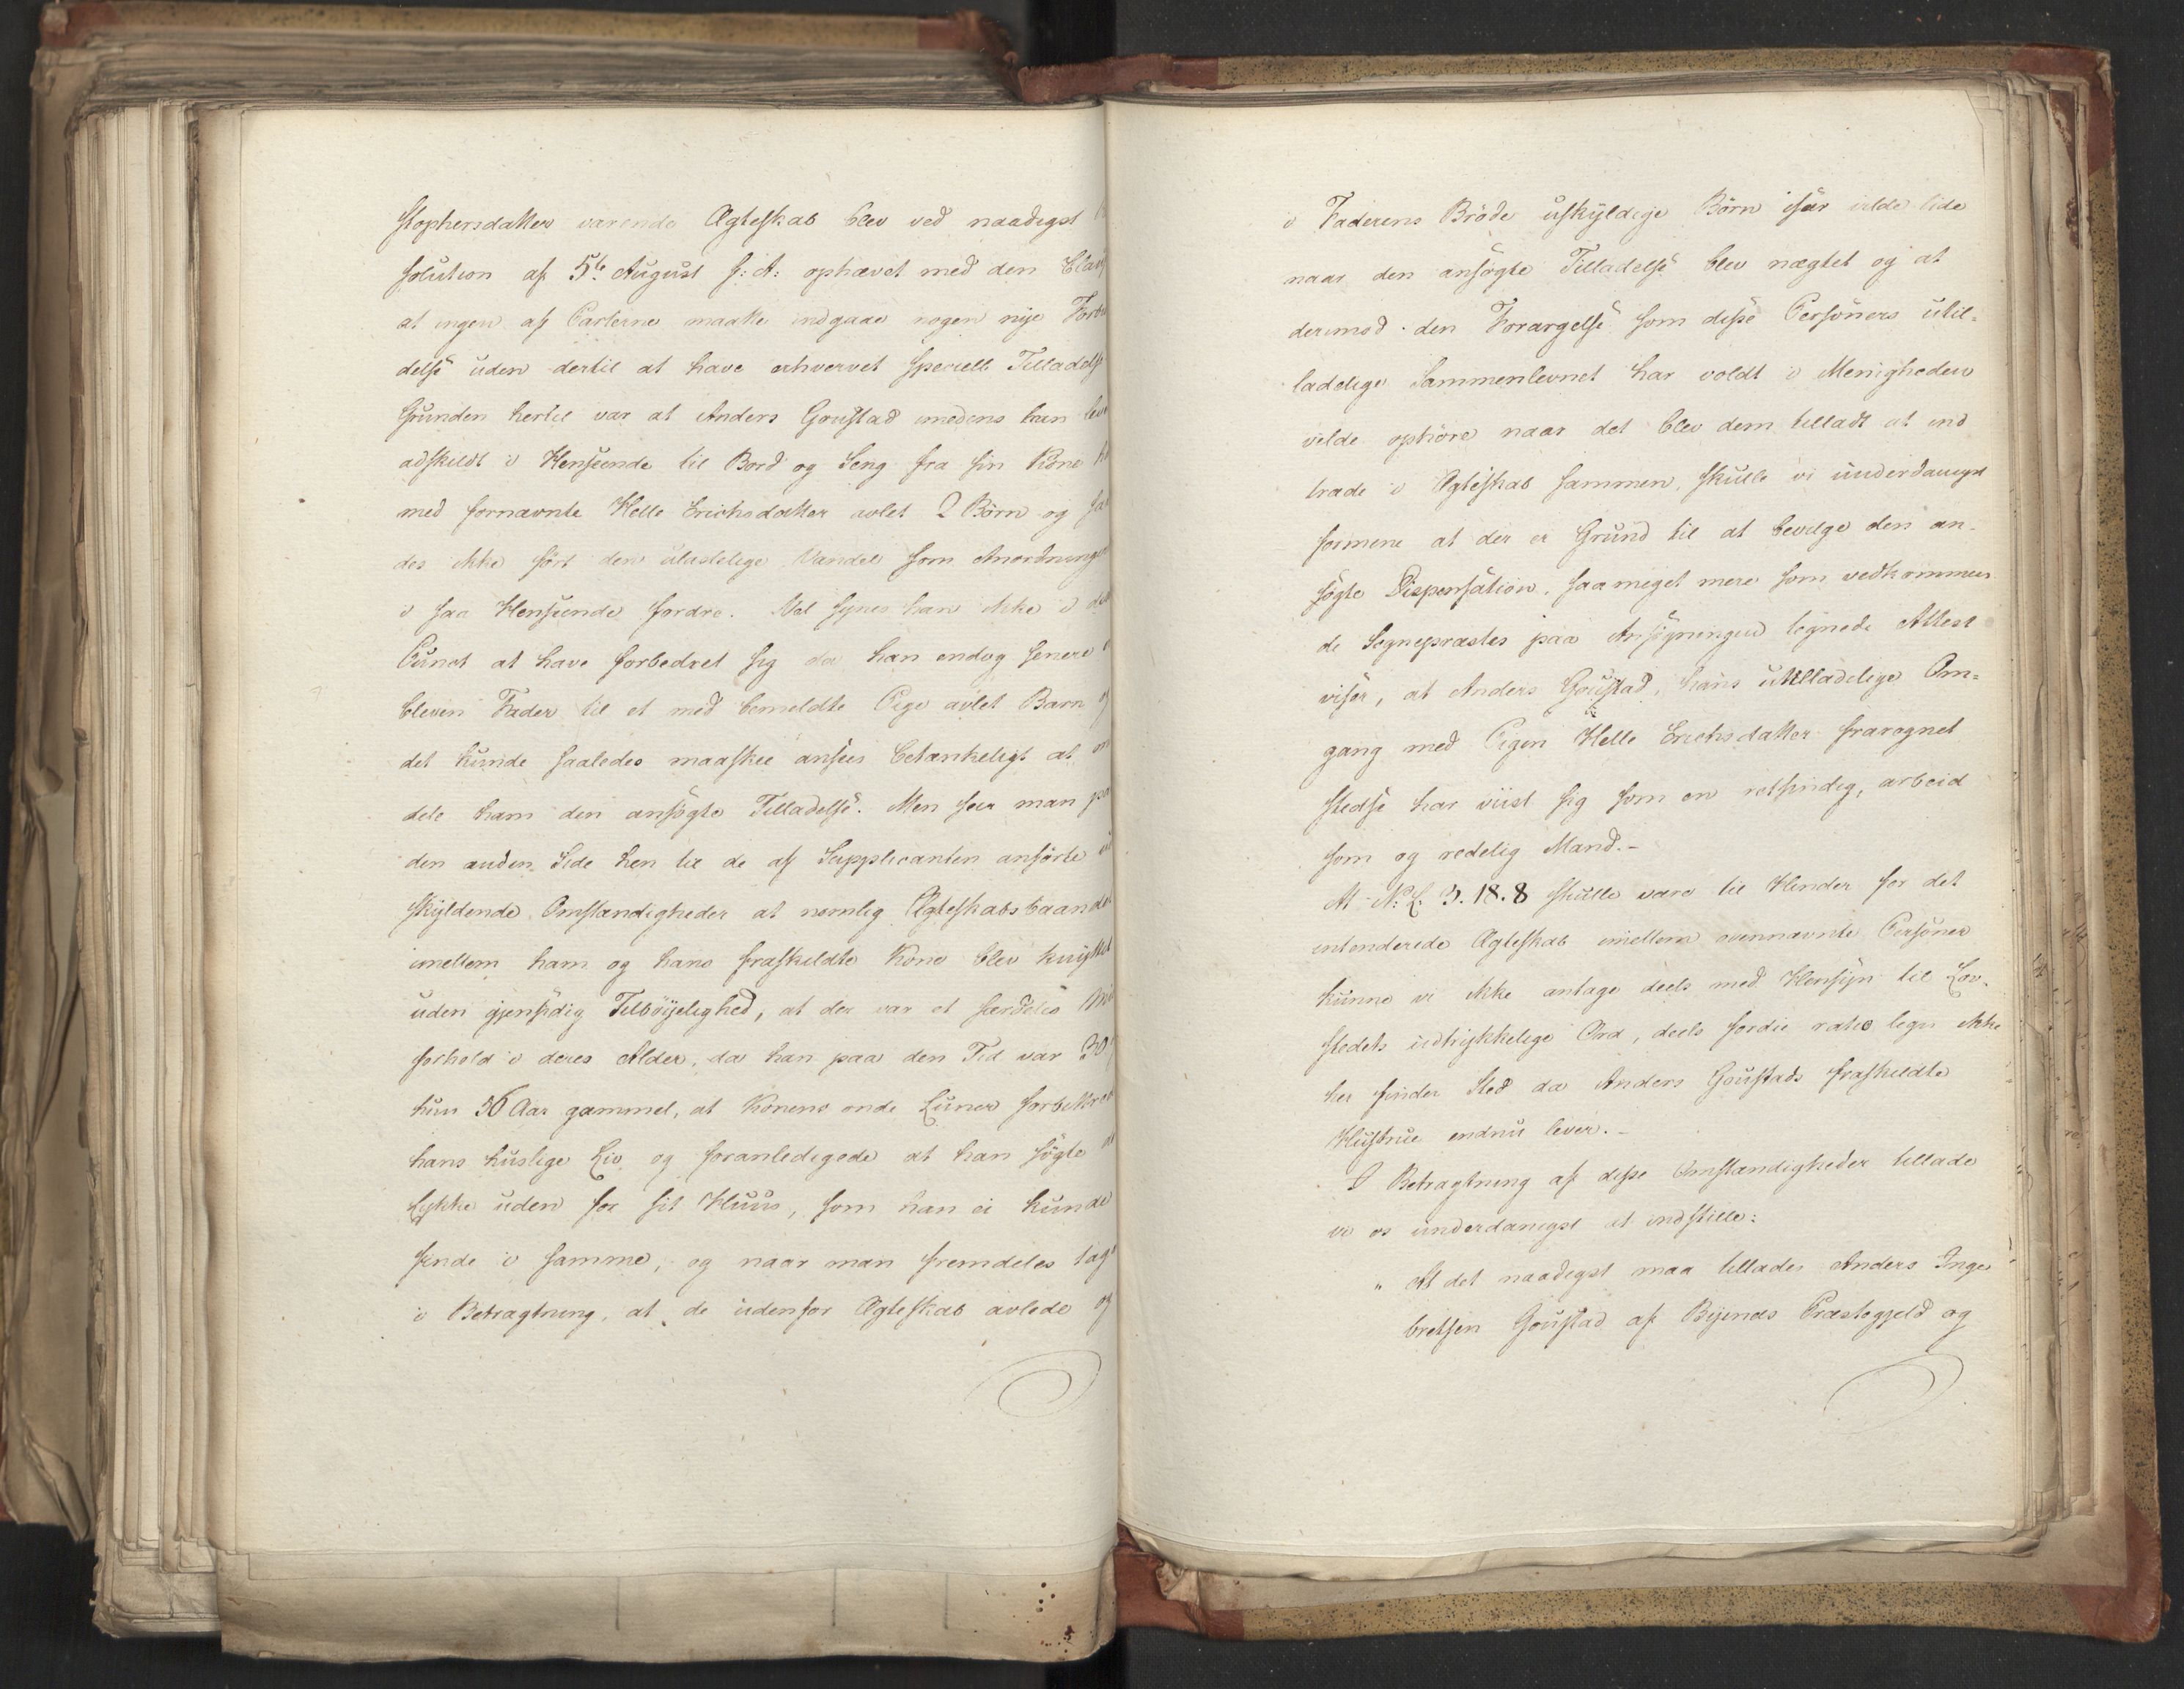 stophersdatters varende Ægteskab blev ved naadigst
solution af 5te August f: A: ophævet med den
at ingen af Parterne maatte indgaae nogen nye
delse uden dertil at have erhvervet speciell Tilladelse
Grunden hertil var at Anders Goustad imedens han
adskildt i Henseende til Bord og Seng fra sin Kone
med fornævnte Helle Erichsdatter avlet 2 Børn og
des ikke ført den ulastelige Vandel som Anordningen
i saa Henseende fordre. Vel synes han ikke i
Punct at have forbedret sig da han endog senere
bleven Fader til et med bemeldte Pige avlet Barn og
det kunde saaledes maaskee ansees betænkeligt at
dele ham den ansøgte Tilladelse. Men seer man
den anden Side hen til de af Supplicanten anførte
skyldende Omstændigheder at nemlig Ægteskabsbaandet
imellem ham og hans fraskildte Kone blev knyttet
uden gjensidig Tilbøyelighed, at der var et særdeles
forhold i deres Alder, da han paa den Tid var 30
hun 56 Aar gammel, at Konens onde Luner forbittrede
hans huslige Liv og foranledigede at han søgte
Lykke uden for sit Huus, som han ei kunde
finde i samme, og naar man fremdeles
i Betragtning, at de udenfor Ægteskab avlede og
i Faderens Brøde uskyldige Børn især vilde lide
naar den ansøgte Tilladelse blev nægtet og at
derimod den Forargelse som disse Personers util-
ladelige Sammenlevnet har voldt i Menigheden
vilde ophøre naar det blev dem tilladt at ind
træde i Ægteskab sammen, skulle vi underdanigst
formene at der er Grund til at bevilge den an-
søgte Dispensation, saa meget mere som vedkommen
de Sognepræstes paa Ansøgningen tegnede Attest
viser, at Anders Goustad, hans utilladelige Om-
gang med Pigen Helle Erichsdatter fraregnet
stedse har viist sig som en retsindig, arbeid
som og redelig Mand.-
At N. L. 3.18.8 skulle være til Hinder for det
intenderede Ægteskab imellem ovennævnte Personer
kunne vi ikke antage deels med Hensyn til Lov-
stedets udtrykkelige Ord, deels fordie ratio legis ikke
her finder Sted da Anders Goustads fraskildte
Hustrue endnu lever.-
I Betragtning af disse Omstændigheder tillade
vi os underdanigst at indstille:
"At det naadigst maa tillades Anders Inge
bretsen Goustad af Byenæs Præstegjeld og